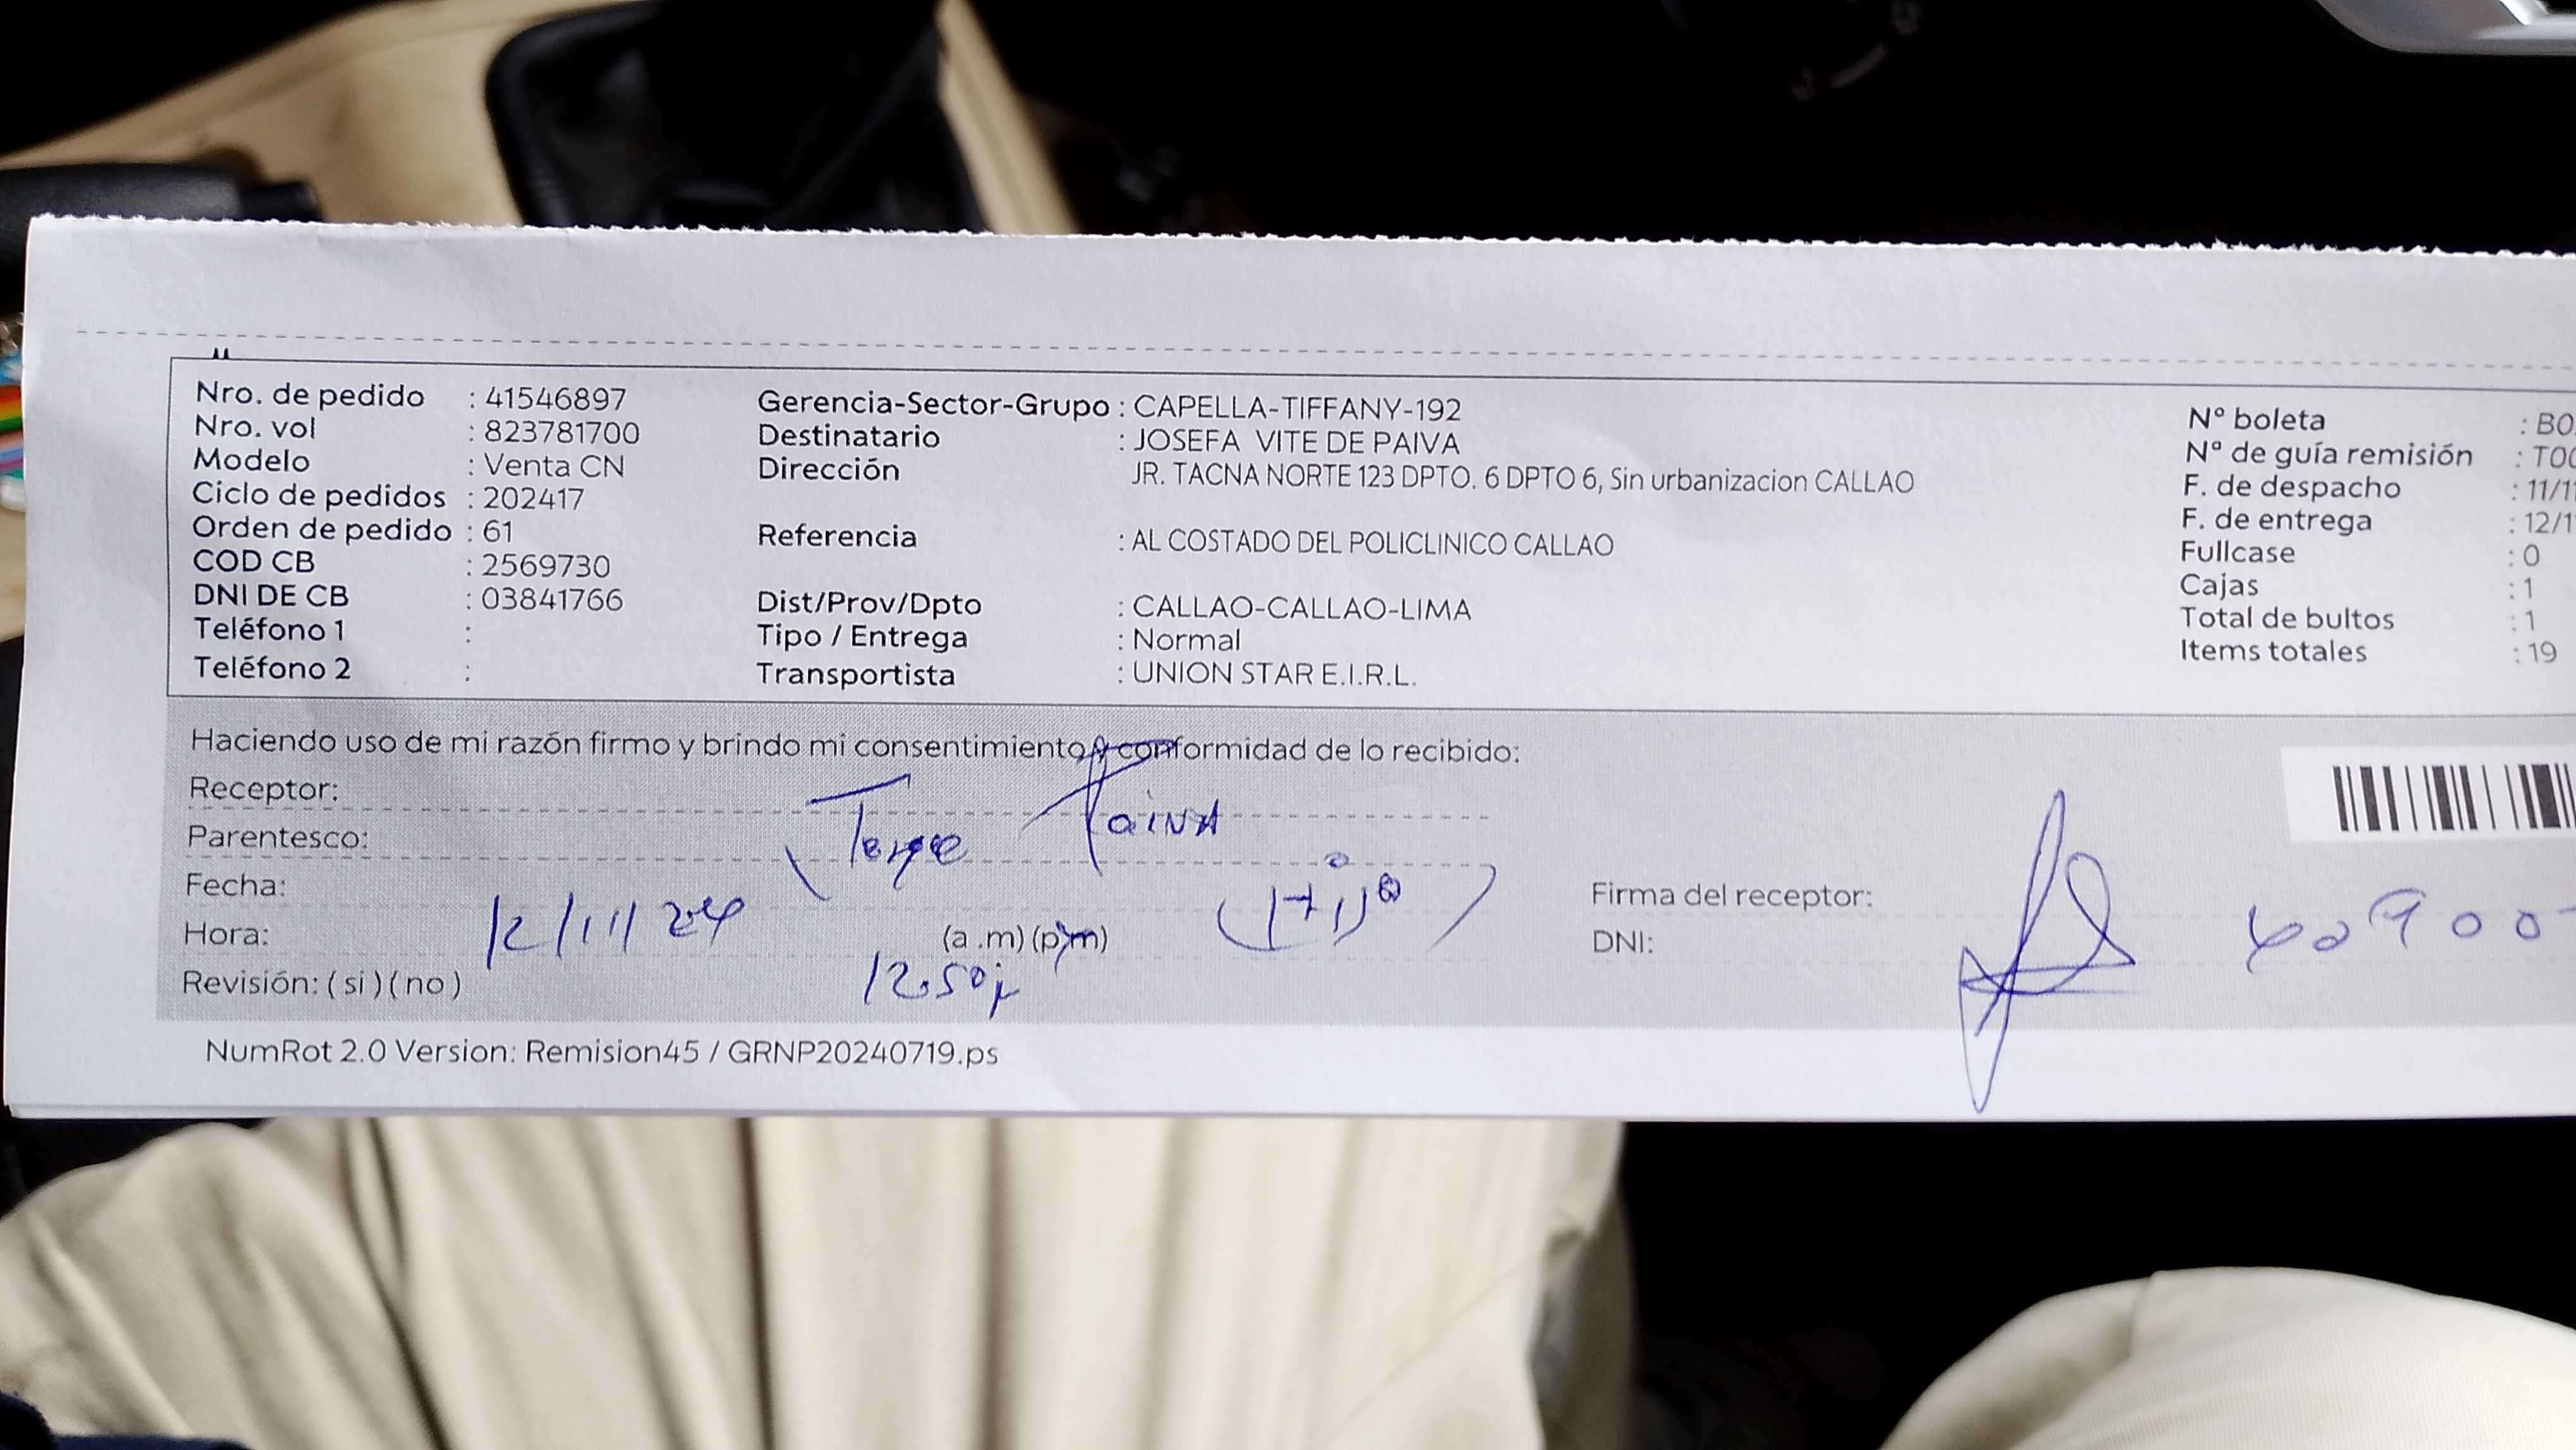 Nro. de pedido : 41546897 Gerencia-Sector-Grupo : CAPELLA-TIFFANY-192 Nº boleta : B0
Nro. vol : 823781700 Destinatario : JOSEFA VITE DE PAIVA Nº de guía remisión : T00
Modelo : Venta CN Dirección JR. TACNA NORTE 123 DPTO. 6 DPTO 6, Sin urbanizacion CALLAO F. de despacho : 11/1
Ciclo de pedidos : 202417 F. de entrega : 12/1
Orden de pedido : 61 Referencia : AL COSTADO DEL POLICLINICO CALLAO Fullcase : 0
COD CB : 2569730 Cajas : 1
DNI DE CB : 03841766 Dist/Prov/Dpto : CALLAO-CALLAO-LIMA Total de bultos : 1
Teléfono 1 : Tipo / Entrega : Normal Items totales : 19
Teléfono 2 : Transportista : UNION STAR E.I.R.L.
Haciendo uso de mi razón firmo y brindo mi consentimiento y conformidad de lo recibido:
Receptor:
Parentesco: Paiva
Fecha: 12/11/24 (Hijo) Firma del receptor:
Hora: (a .m) (p.m) DNI:
Revisión: ( si ) ( no ) 12.50
NumRot 2.0 Version: Remision45 / GRNP20240719.ps